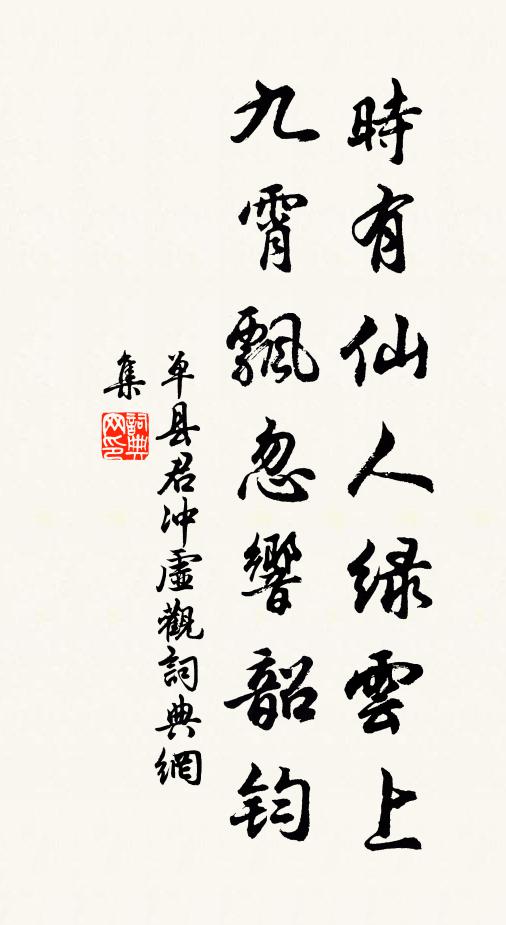 時有仙人绿雲上
九霄飄忽響韶钧
单县君沖虛觀詞典網
集
詞典
网印